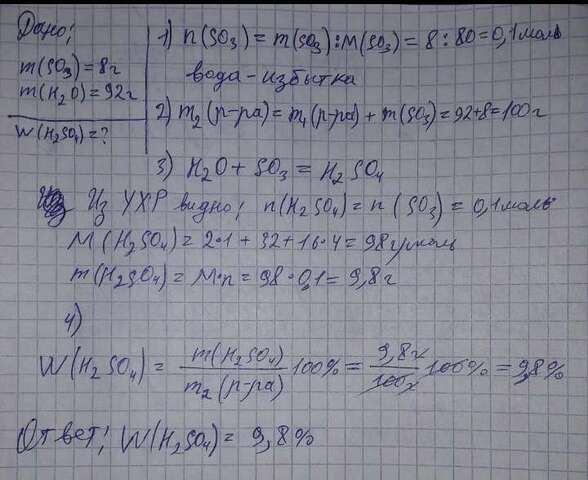 Дано:
m(SO₃) = 8г
m(H₂O) = 92г
W(H₂SO₄) = ?
1) n(SO₃) = m(SO₃) : M(SO₃) = 8 : 80 = 0,1 моль
вода - избытка
2) m₂(р-ра) = m₁(р-ра) + m(SO₃) = 92+8 = 100г
3) H₂O + SO₃ = H₂SO₄
Из УХР видно: n(H₂SO₄) = n(SO₃) = 0,1 моль
M(H₂SO₄) = 2·1 + 32 + 16·4 = 98 г/моль
m(H₂SO₄) = M·n = 98 · 0,1 = 9,8г
4)
W(H₂SO₄) = m(H₂SO₄) / m₂(р-ра) 100% = 9,8г / 100г 100% = 9,8%
Ответ: W(H₂SO₄) = 9,8%